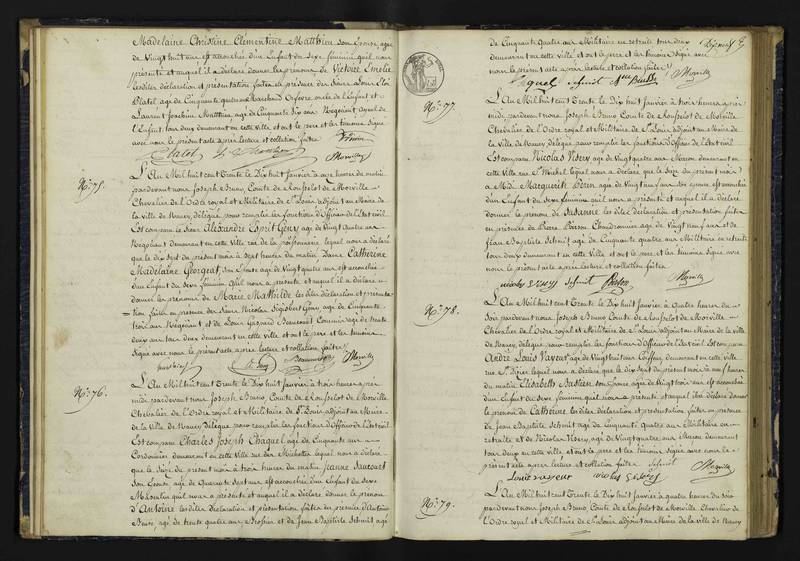 Madelaine Christine Clementine Matthieu son épouse, agée
de Vingt huit ans est accouchée d'un Enfant du Sexe féminin qu'il nous
présente et auquel il a déclaré donner les prénoms de Victoire Emelie
les dites déclaration et présentation faites en présence des Sieurs
Platel agé de Cinquante quatre ans Marchand Orfèvre oncle de l'Enfant et
Laurent Joachim Matthieu, agé de Cinquante Négociant Ayeul de
l'Enfant, tous deux demeurant en cette ville et ont le père et les témoins signé
avec nous le présent acte après lecture et collation faites
Platel Morville
N.° 75.
L'An Mil huit cent Trente le Dix huit Janvier à onze heures du matin
pardevant nous Joseph Bruno Comte de Rousselot de Morville
Chevalier de l'Ordre royal et Militaire de S.t Louis adjoint au Maire de
la ville de Nancy, délégué pour remplir les fonctions d'Officier de l'Etat civil
Est comparu le Sieur Alexandre Esprit Geny agé de Vingt quatre ans
Négociant demeurant en cette Ville rue de la poissonnerie lequel nous a déclaré
que le dix sept du présent mois à sept heures du matin Dame Catherine
Madelaine Georgeat, son épouse agée de Vingt quatre ans est accouchée
d'un Enfant du Sexe féminin qu'il nous a présenté et auquel il a déclaré
donner les prénoms de Marie Mathilde les dites déclaration et présenta
tion faites en présence des Sieurs Nicolas Sigisbert Geny agé de Cinquante
trois ans Négociant et de Louis Gaspard Beaucourt Commis agé de trente
deux ans tous deux demeurant en cette ville et ont le père et les témoins
Signé avec nous le présent acte après lecture et collation faites
Morville
N.° 76.
L'An Mil huit cent Trente le Dix huit Janvier à trois heures après
midi pardevant nous Joseph Bruno Comte de Rousselot de Morville
Chevalier de l'Ordre royal et Militaire de S.t Louis adjoint au Maire
de la Ville de Nancy délégué pour remplir les fonctions d'Officier de l'Etat civil
Est comparu Charles Joseph Chaquel agé de Cinquante ans
Cordonnier demeurant en cette Ville rue des Michottes lequel nous a déclaré
que le Seize du présent mois à trois heures du matin Jeanne
son épouse, agée de Quarante sept ans est accouchée d'un Enfant du Sexe
Masculin qu'il nous a présenté et auquel il a déclaré donner le prénom
d'Antoine les dites déclaration et présentation faites en présence d'Antoine
agé de trente quatre ans et Jean Baptiste Schmit agé
de Cinquante quatre ans Militaire en retraite tous deux
demeurant en cette ville et ont le père et les témoins Signé avec
nous le présent acte après lecture et collation faites
Schmit Morville
N.° 77.
L'An Mil huit cent Trente le Dix huit Janvier à trois heures après
midi pardevant nous Joseph Bruno Comte de Rousselot de Morville
Chevalier de l'Ordre royal et Militaire de S.t Louis adjoint au Maire de
la Ville de Nancy, délégué pour remplir les fonctions d'Officier de l'Etat civil
Est comparu Nicolas Noëry agé de Vingt quatre ans Maçon demeurant en
cette ville rue S.t Michel lequel nous a déclaré que le Seize du présent mois
à Midi Marguerite Peron agée de Vingt ans son épouse est accouchée
d'un Enfant du Sexe féminin qu'il nous a présenté et auquel il a déclaré
donner le prénom de Susanne les dites déclaration et présentation faites
en présence de Pierre Chaudronnier agé de Vingt neuf ans et de
Jean Baptiste Schmit agé de Cinquante quatre ans Militaire en retraite
tous deux demeurant en cette ville et ont le père et les témoins Signé avec
nous le présent acte après lecture et collation faites
Schmit Morville
N.° 78.
L'An Mil huit cent Trente le Dix huit Janvier à quatre heures du
soir pardevant nous Joseph Bruno Comte de Rousselot de Morville
Chevalier de l'Ordre royal et Militaire de S.t Louis adjoint au Maire de la ville
de Nancy, délégué pour remplir les fonctions d'Officier de l'Etat civil Est comparu
André Louis Vayeur agé de Vingt huit ans Coiffeur demeurant en cette ville
rue S.t Dizier lequel nous a déclaré que le dix sept du présent mois à une heure
du matin Elisabeth Bastien son épouse agée de Vingt trois ans est accouchée
d'un Enfant du Sexe féminin qu'il nous a présenté et auquel il a déclaré donner
le prénom de Catherine les dites déclaration et présentation faites en présence
de Jean Baptiste Schmit agé de Cinquante quatre ans Militaire en
retraite et de Nicolas Noëry agé de Vingt quatre ans Maçon demeurant
tous deux en cette ville et ont le père et les témoins Signé avec nous le
présent acte après lecture et collation faites Schmit Morville
Louis vayeur
N.° 79.
L'An Mil huit cent Trente le Dix huit Janvier à quatre heures du soir
pardevant nous Joseph Bruno Comte de Rousselot de Morville Chevalier de
l'Ordre royal et Militaire de S.t Louis adjoint au Maire de la ville de Nancy